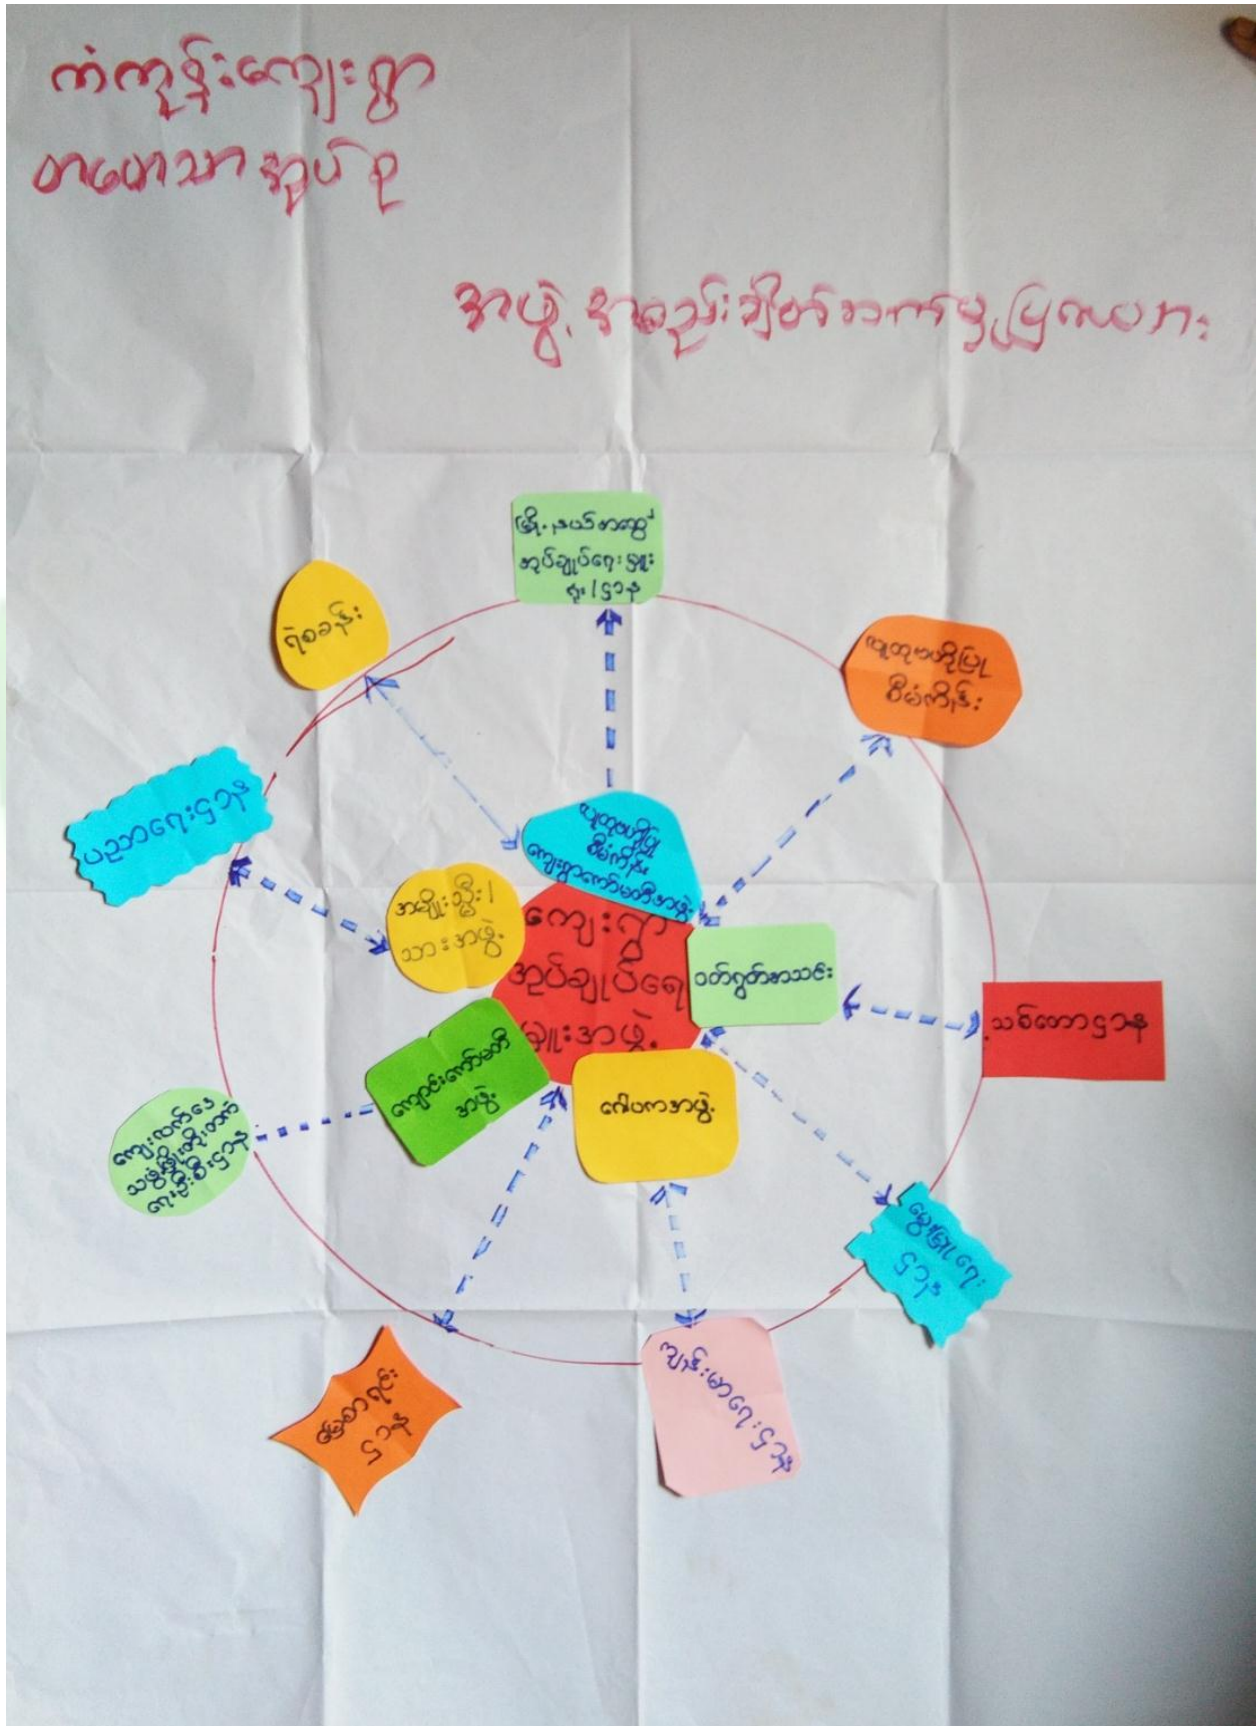 ကံကုန်းကျေးရွာ
တမာသာအုပ်စု
အဖွဲ့အစည်းချိတ်ဆက်မှုပြကားချပ်
မြို့နယ်အထွေ
အုပ်ချုပ်ရေးမှူး
ရုံး/ဌာန
ရဲစခန်း
လူထုဗဟိုပြု
စီမံကိန်း
ပညာရေးဌာန
လူထုဗဟိုပြု
စီမံကိန်း
ကျေးရွာကော်မတီအဖွဲ့
အမျိုးသ္မီး/
သားအဖွဲ့
ကျေးရွာ
အုပ်ချုပ်ရေ
မှူးအဖွဲ့
ဝတ်ရွတ်အသင်း
သစ်တောဌာန
ကျောင်းကော်မတီ
အဖွဲ့
ဂေါပကအဖွဲ့
ကျေးလက်ဒေ
သဖွံ့ဖြိုးတိုးတက်
ရေးဦးစီးဌာန
မွေးမြူရေး
ဌာန
မြေစာရင်း
ဌာန
ကျန်းမာရေးဌာန